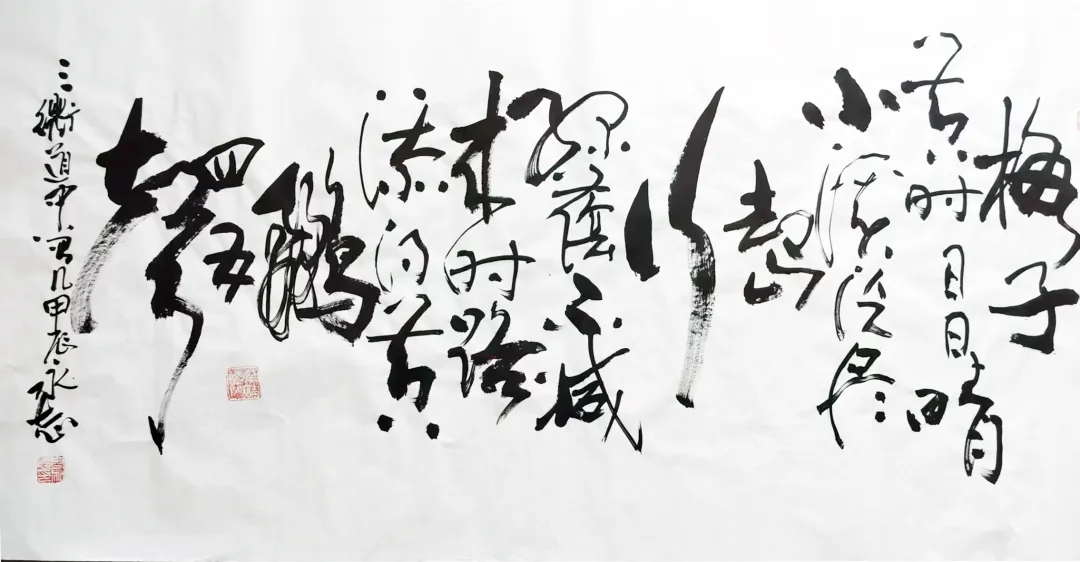 梅子
黄时日日晴
小溪泛尽
却山
行
绿荫不减
来时路
添得黄
鹂
四五
声
三衢道中曾几甲辰永志